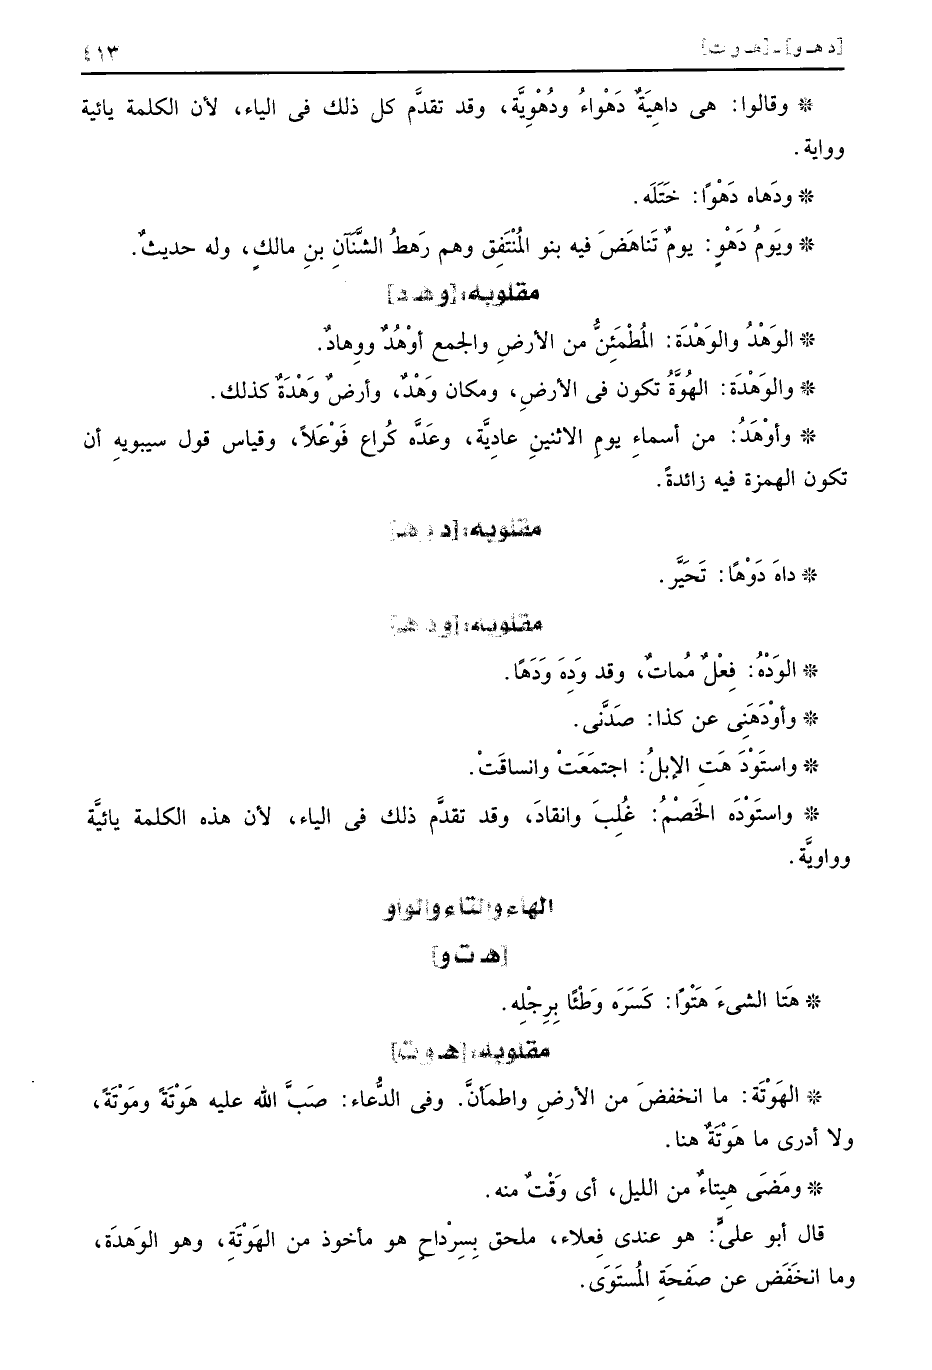 [د هـ و] ـ [هـ و ت]
٤١٣
* وقالوا: هى داهِيَةٌ دَهْواءُ ودُهْوِيَّة، وقد تقدَّم كل ذلك فى الياء، لأن الكلمة يائية
وواية.
* ودَهاه دَهْوًا: خَتَلَه.
* ويَومُ دَهْوٍ: يومٌ تَناهَضَ فيه بنو المُنْتَفِق وهم رَهطُ الشَّنَآنِ بنِ مالكٍ، وله حديثٌ.
مقلوبه: [و هـ د]
* الوَهْدُ والوَهْدَة: المُطْمَئِنُّ من الأرضِ والجمع أوْهُدٌ ووِهادٌ.
* والوَهْدَة: الهُوَّةُ تكون فى الأرضِ، ومكان وَهْدٌ، وأرضٌ وَهْدَةٌ كذلك.
* وأوْهَدُ: من أسماءِ يومِ الاثنينِ عادِيَّة، وعَدَّه كُراع فَوْعَلاً، وقياس قول سيبويهِ أن
تكون الهمزة فيه زائدةً.
مقلوبه: [د و هـ]
* داهَ دَوْهًا: تَحَيَّر.
مقلوبه: [و د هـ]
* الوَدْهُ: فِعْلٌ مُماتٌ، وقد وَدِهَ وَدَهًا.
* وأوْدَهَنِى عن كذا: صَدَّنى.
* واستَوْدَ هَتِ الإبلُ: اجتمَعَتْ وانساقَتْ.
* واستَوْدَه الخَصْمُ: غُلِبَ وانقادَ، وقد تقدَّم ذلك فى الياء، لأن هذه الكلمة يائيَّة
وواويَّة.
الهاء والتاء والواو
[هـ ت و]
* هَتا الشىءَ هَتْوًا: كَسَرَه وَطْئًا بِرِجْلِه.
مقلوبه: [هـ و ت]
* الهَوْتَة: ما انخفضَ من الأرضِ واطمأنَّ. وفى الدُّعاء: صَبَّ الله عليه هَوْتَةً ومَوْتَةً،
ولا أدرى ما هَوْتَةٌ هنا.
* ومَضَى هِيتاءٌ من الليل، أى وَقْتٌ منه.
قال أبو علىٍّ: هو عندى فِعلاء، ملحق بِسِرْداحٍ هو مأخوذ من الهَوْتَةِ، وهو الوَهدَة،
وما انخَفَض عن صَفحَةِ المُستَوَى.